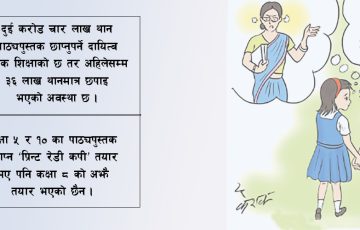 दुई करोड चार लाख थान
पाठ्यपुस्तक छाप्नुपर्ने दायित्व
शिक्षाको छ तर अहिलेसम्म
३६ लाख थानमात्र छपाइ
भएको अवस्था छ ।
५ र १० का पाठ्यपुस्तक
‘प्रिन्ट रेडी कपी’ तयार
पनि कक्षा ८ को अझै
तयार भएको छैन ।